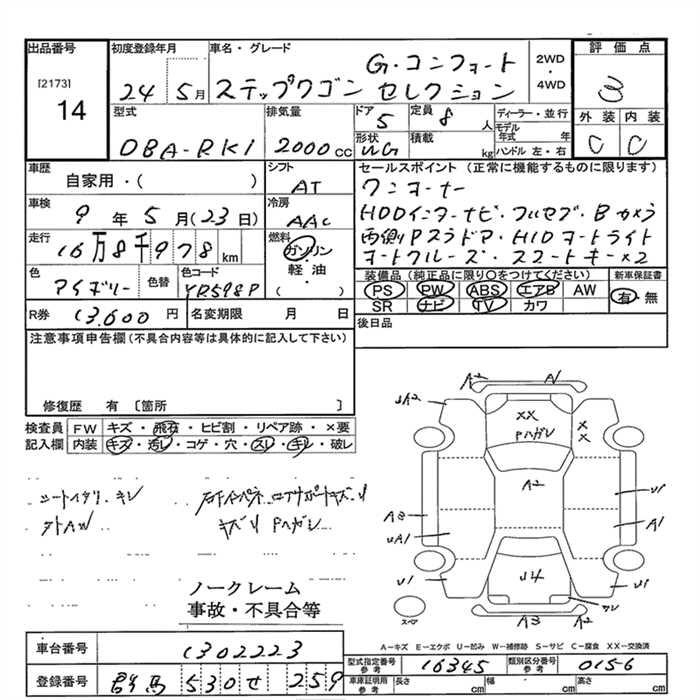 出品番号 初度登録年月 車名・グレード 評価点
[2173]
14
24 5月
ステップワゴン G・コンフォートセレクション
2WD・4WD
3
型式 排気量 ドア 定員 ディーラー・並行 外装 内装
DBA-RK1 2000cc 5 8人
モデル年式 年
C C
形状 積載 ハンドル 左・右
WG kg
車歴 シフト セールスポイント (正常に機能するものに限ります)
自家用・( ) AT
ワンオーナー
車検 冷房
9年5月(23日) AAC
HDDインターナビ・フルセグ・Bカメラ
走行 燃料
16万8千978km ガソリン 軽油・( )
両側Pスラドア・HIDオートライト
オートクルーズ・スマートキー×2
色 色替 色コード
アイボリー YR598P
装備品 (純正品に限り○をつけてください) 新車保証書
PS PW ABS エアB AW 有・無
SR ナビ TV カワ
R券 13,600円 名変期限 月 日
後日品
注意事項申告欄(不具合内容等は具体的に記入して下さい)
修復歴 有 〔箇所 〕
検査員 FW キズ・飛石・ヒビ割・リペア跡・×要
記入欄 内装 キズ・汚レ・コゲ・穴・スレ・キレ・破レ
A2 A1
UA2
XX
Pハガレ
X
X
A2
A3 U1
UA1 A1
U1 U4 U1
スペア
A3 A2
ノークレーム
事故・不具合等
A-キズ E-エクボ U-凹み W-補修跡 S-サビ C-腐食 XX-交換済
車台番号 1302223
登録番号 群馬 530 せ 259
型式指定番号 参考 16345 類別区分番号 参考 0156
車庫証明用 参考 長さ cm 幅 cm 高さ cm